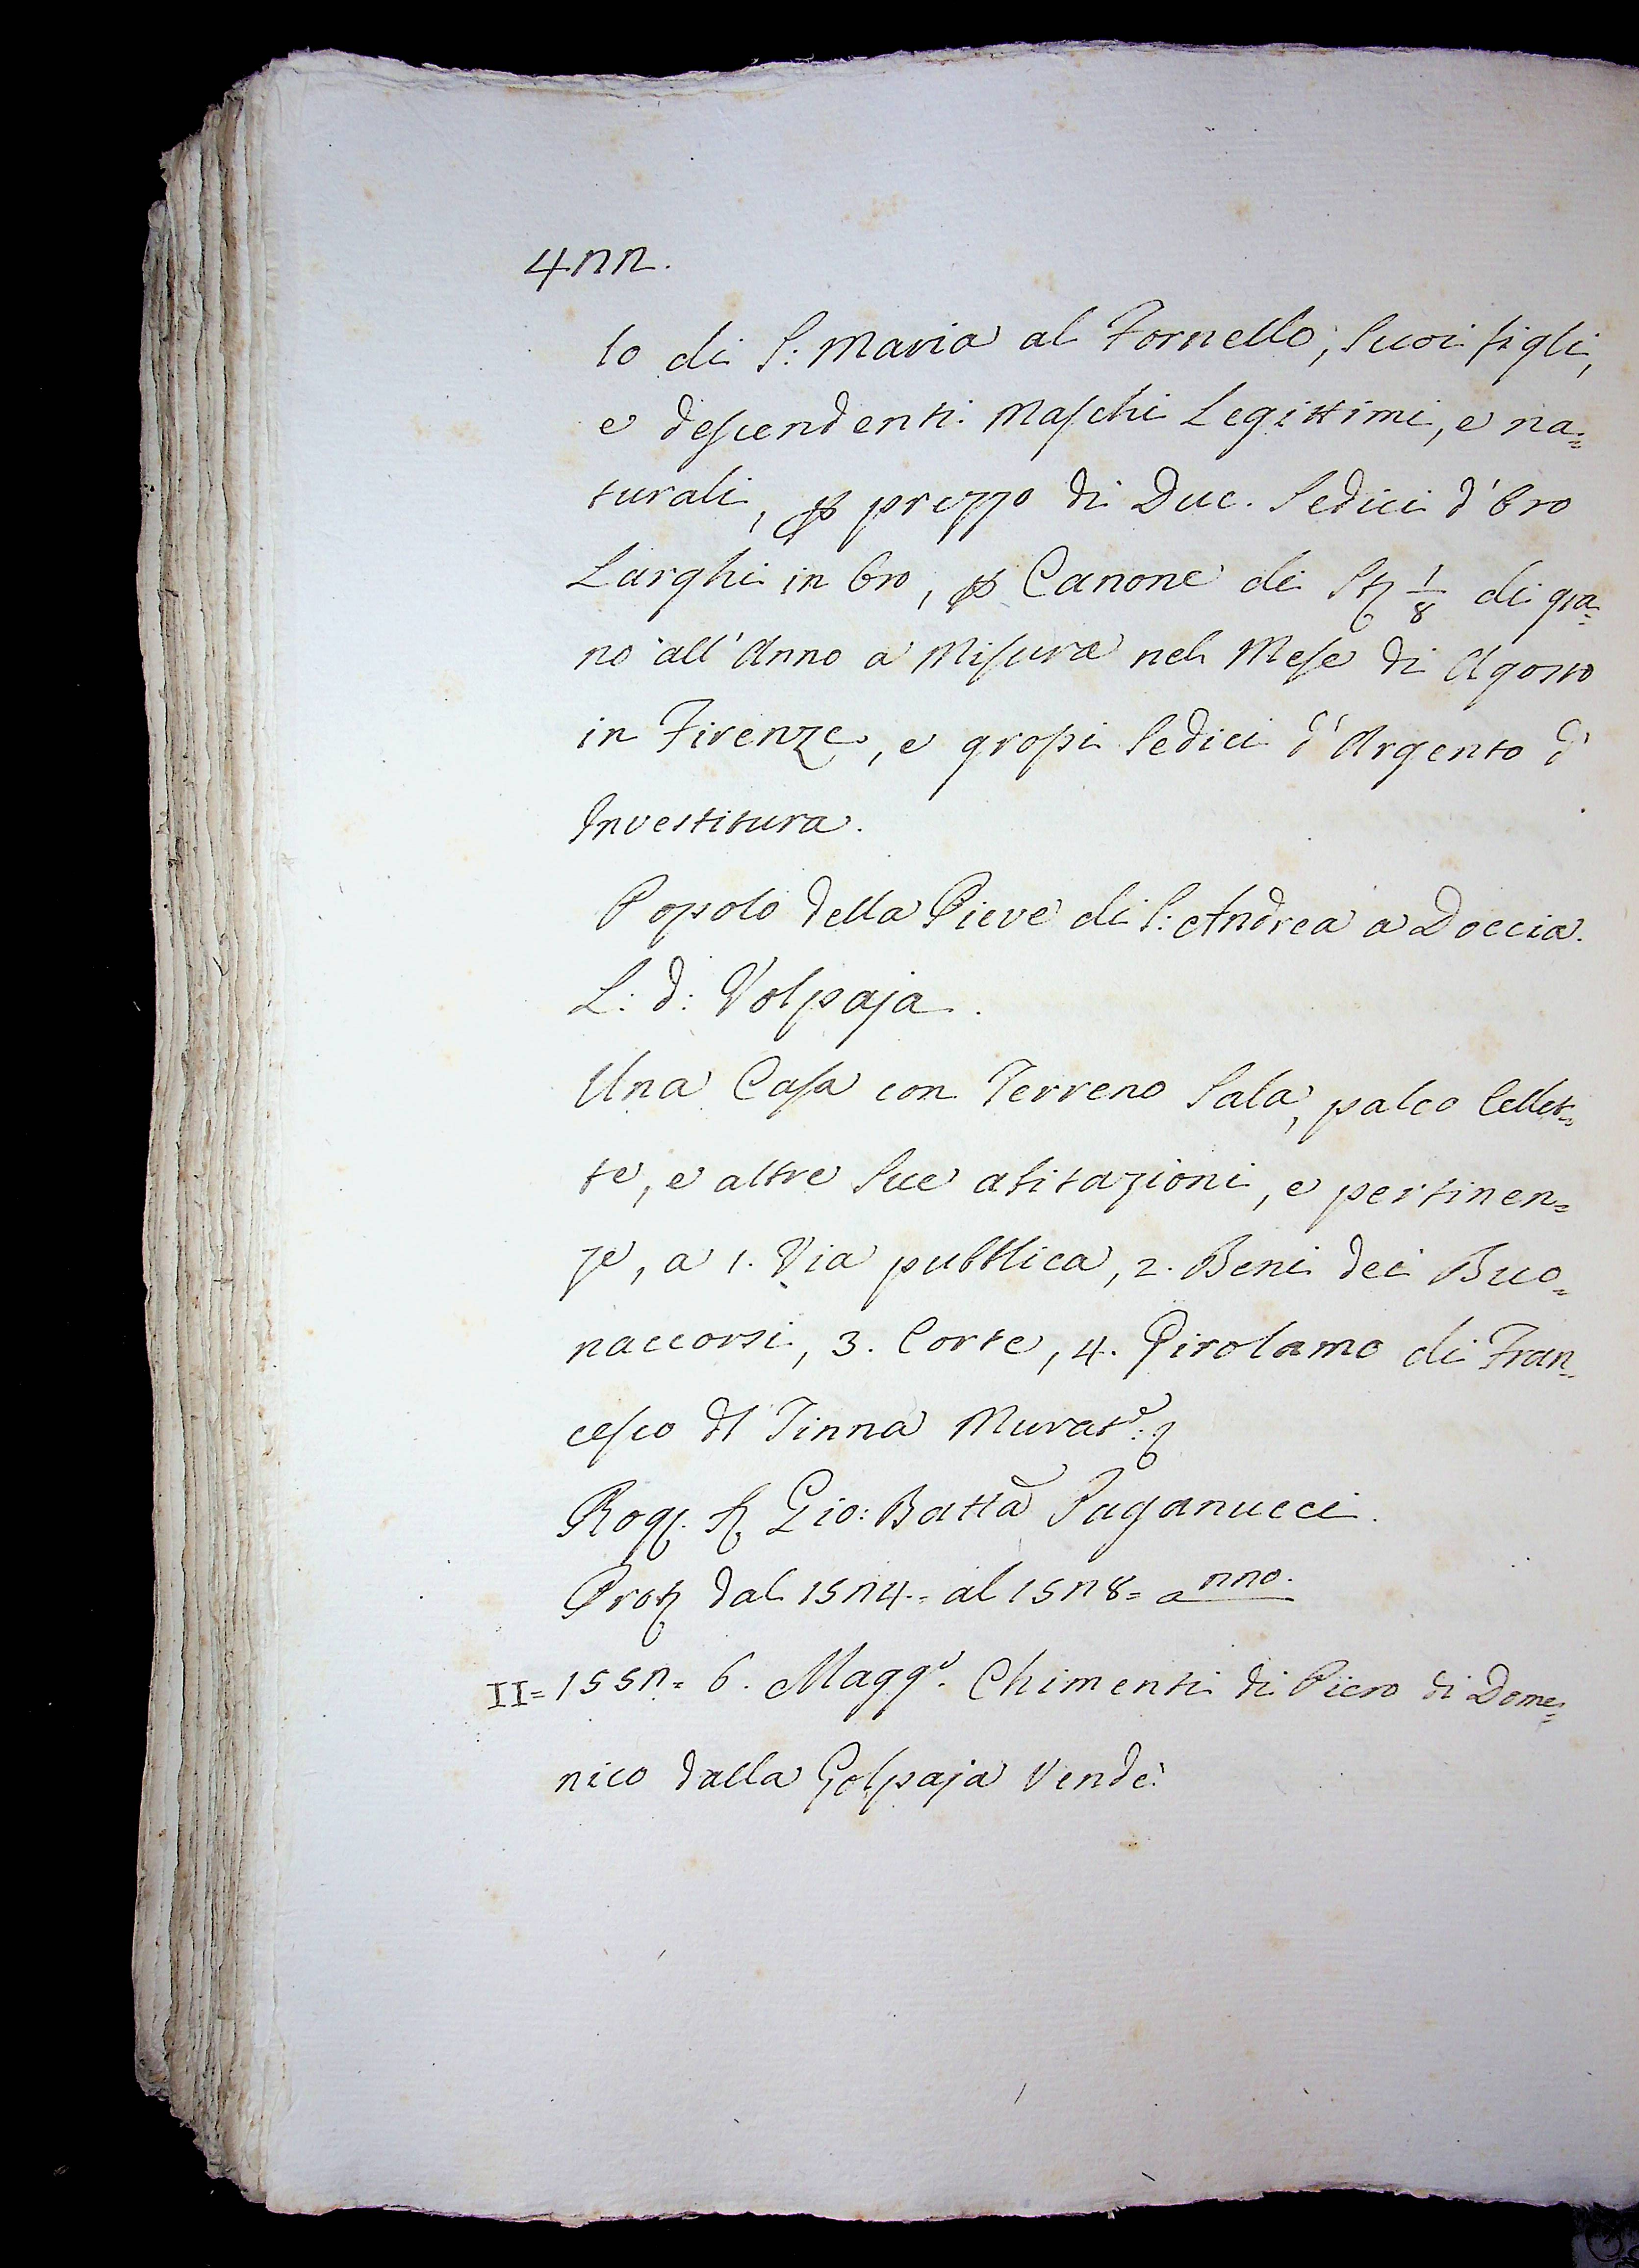 477.
lo di S: Maria al Fornello, Suoi figli,
e descendenti Maschi Legittimi, e na=
turali, p prezzo di Duc. Sedici d'Oro
Larghi in Oro, p Canone di St 1/8 di gra=
no all'Anno a Misura nel Mese di Agosto
in Firenze, e grossi Sedici d'Argento d'
Investitura.
Popolo della Pieve di S: Andrea a Doccia.
L: d: Volpaja.
Una Casa con Terreno Sala, palco Cellet=
te, e altre Sue abitazioni, e pertinen=
ze, a 1. Via pubblica, 2. Beni dei Buo=
naccorsi, 3. Corte, 4. Girolamo di Fran=
cesco dl Tinna Murat.e:
Rog. S Gio: Batta Paganucci.
Prot dal 1574.= al 1578= a 770.
II= 1557= 6. Magg.o Chimenti di Piero di Dome=
nico dalla Golpaja Vendè: